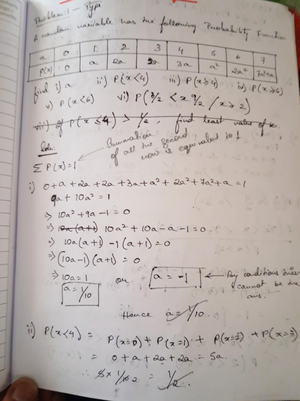 Problem:1 - Type
A random variable has the following Probability Function
x 0 1 2 3 4 5 6 7
P(x) 0 a 2a 2a 3a a² 2a² 7a²+a
find i) a ii) P(x<4) iii) P(x≥4) iv) P(x≥6)
v) P(x<6) vi) P(3/2 < x 9/2 / x≥2)
vii) If P(x≤4) > 1/2, find least value of x.
Soln:
Summation of all the second row is equivalent to 1
Σ P(x)=1
i) 0+a+2a+2a+3a+a²+2a²+7a²+a =1
9a + 10a² = 1
⇒ 10a² + 9a - 1 = 0
⇒ 10a² + 10a - a - 1 = 0
⇒ 10a (a+1) - 1 (a+1) = 0
⇒ (10a-1) (a+1) = 0
⇒ 10a = 1
a = 1/10 or a = -1
By condition cannot be the ans.
Hence a = 1/10.
ii) P(x<4) = P(x=0) + P(x=1) + P(x=2) + P(x=3)
= 0 + a + 2a + 2a = 5a
= 1/2.